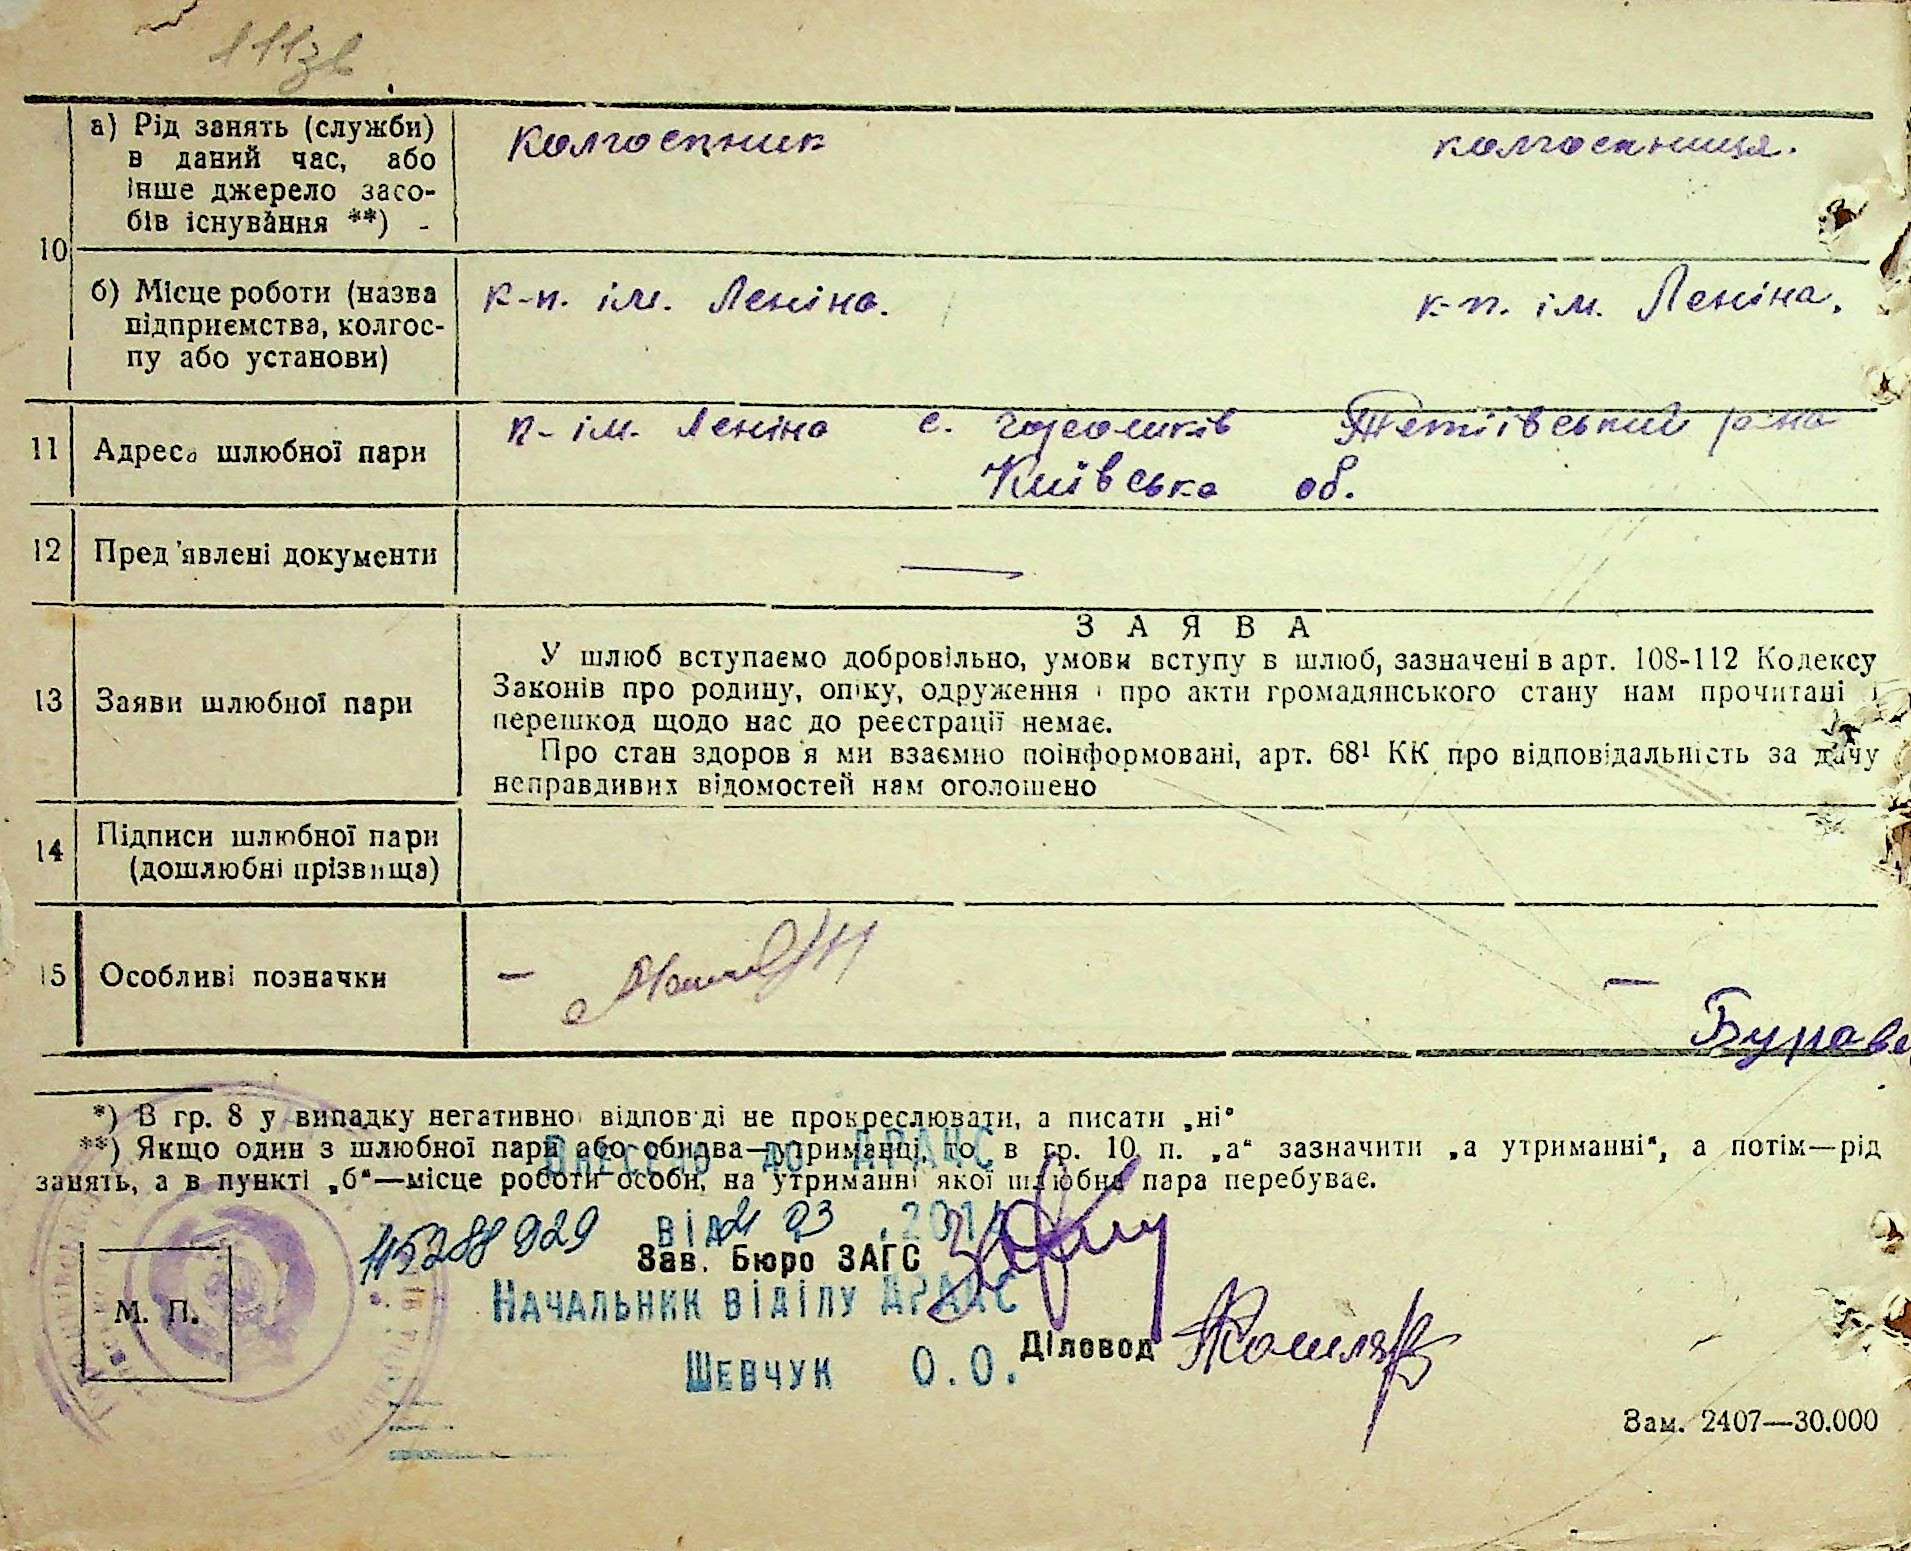 111зв
а) Рід занять (служби) в даний час, або інше джерело засобів існування **) - колгоспник колгоспниця.
10
б) Місце роботи (назва підприємства, колгоспу або установи) к-п. ім. Леніна. к-п. ім. Леніна.
11 Адреса шлюбної пари п- ім. Леніна с. Тетіївський р-на
Київська об.
12 Пред'явлені документи —
13 Заяви шлюбної пари
ЗАЯВА
У шлюб вступаємо добровільно, умови вступу в шлюб, зазначені в арт. 108-112 Кодексу
Законів про родину, опіку, одруження і про акти громадянського стану нам прочитані і
перешкод щодо нас до реєстрації немає.
Про стан здоров'я ми взаємно поінформовані, арт. 68¹ КК про відповідальність за дачу
неправдивих відомостей нам оголошено
14 Підписи шлюбної пари
(дошлюбні прізвища)
15 Особливі позначки — —
*) В гр. 8 у випадку негативної відповіді не прокреслювати, а писати „ні“
**) Якщо один з шлюбної пари або обидва—утриманці, то в гр. 10 п. „а“ зазначити „а утриманні“, а потім—рід
занять, а в пункті „б“—місце роботи особи, на утриманні якої шлюбна пара перебуває.
Внесено до ДРАЦС
від 21 03
Зав. Бюро ЗАГС
Начальник відділу ДРАЦС
М. П.
Діловод
Шевчук О.О.
Зам. 2407—30.000